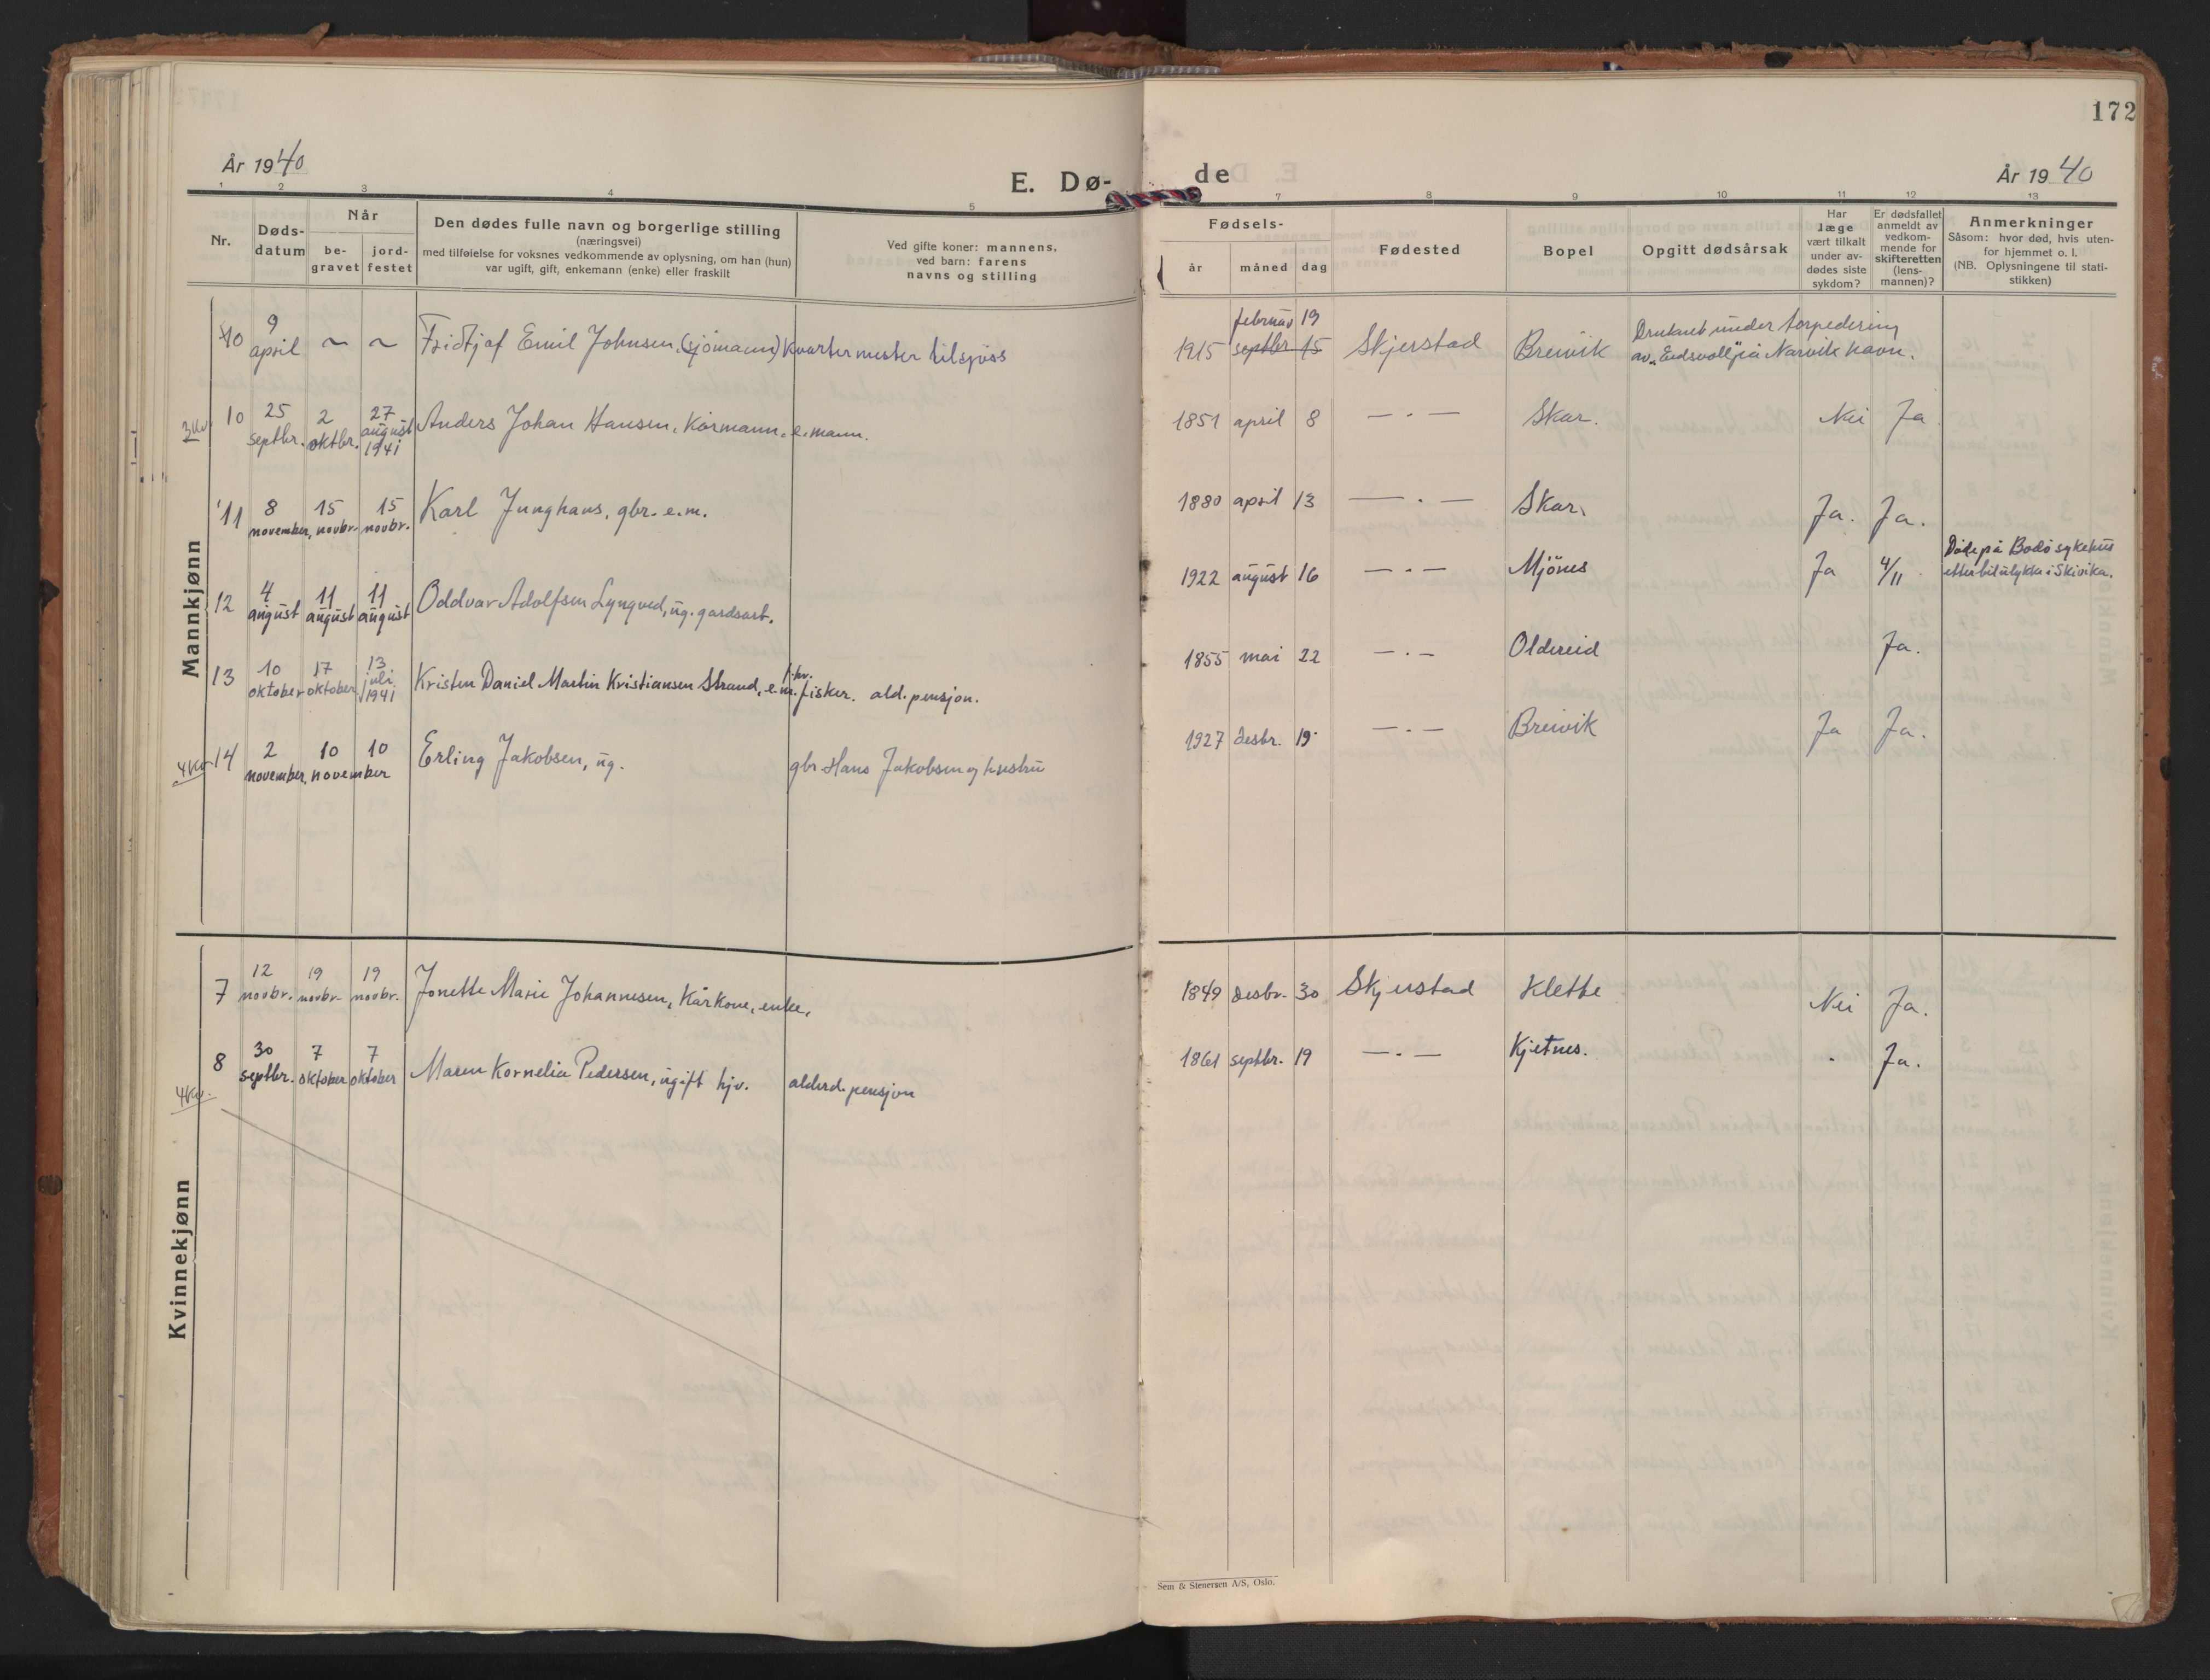 172
År 1940
E. Dø-
de
År 1940
1 2 3 4 5 7 8 9 10 11 12 13
Nr.
Døds-
datum
Når
be-
gravet
jord-
festet
Den dødes fulle navn og borgerlige stilling
(næringsvei)
med tilføielse for voksnes vedkommende av oplysning, om han (hun)
var ugift, gift, enkemann (enke) eller fraskilt
Ved gifte koner: mannens,
ved barn: farens
navns og stilling
Fødsels-
år måned dag
Fødested
Bopel
Opgitt dødsårsak
Har
læge
vært tilkalt
under av-
dødes siste
sykdom?
Er dødsfallet
anmeldt av
vedkom-
mende for
skifteretten
(lens-
mannen)?
Anmerkninger
Såsom: hvor død, hvis uten-
for hjemmet o. l.
(NB. Oplysningene til stati-
stikken)
Mannkjønn
10 9 april ~ ~ Fridtjof Emil Johnsen, (sjömann) Kvartermester tilsjöss 1915 septbr 15 februar 19 Skjerstad Breivik Druknet under torpedering
av "Eidsvoll" på Narvik havn.
3 Kv. 10 25 septbr. 2 oktbr. 27 august 1941 Anders Johan Hansen, Kårmann, e.mann. 1851 april 8 — . — Skar. Nei Ja
11 8 november, 15 novbr. 15 novbr. Karl Junghans, gbr. e.m. 1880 april 13 — . — Skar. Ja. Ja.
12 4 august 11 august 11 august Oddvar Adolfsen Lyngved, ug. gardsarb. 1922 august 16 — . — Mjönes Ja 4/11 Døde på Bodö sykehus
etter bilulykke i Skivika.
13 10 oktober 17 oktober 13 juli 1941 Kristen Daniel Martin Kristiansen Strand, e.m. f.hv. fisker. ald. pensjon. 1855 mai 22 — . — Oldereid Ja.
4 Kv 14 2 november, 10 november 10 Erling Jakobsen, ug. gbr Hans Jakobsen og hustru 1927 desbr. 19 — . — Breivik Ja Ja.
Kvinnekjønn
7 12 novbr. 19 novbr. 19 novbr. Jonette Marie Johannesen, Kårkone, enke, 1849 desbr. 30 Skjerstad Klette Nei Ja.
4 Kv. 8 30 septbr. 7 oktober 7 oktober Maren Kornelia Pedersen, ugift hjv. alderd. pensjon 1861 septbr. 19 — . — Kjetnes. Ja.
Sem & Stenersen A/S, Oslo.